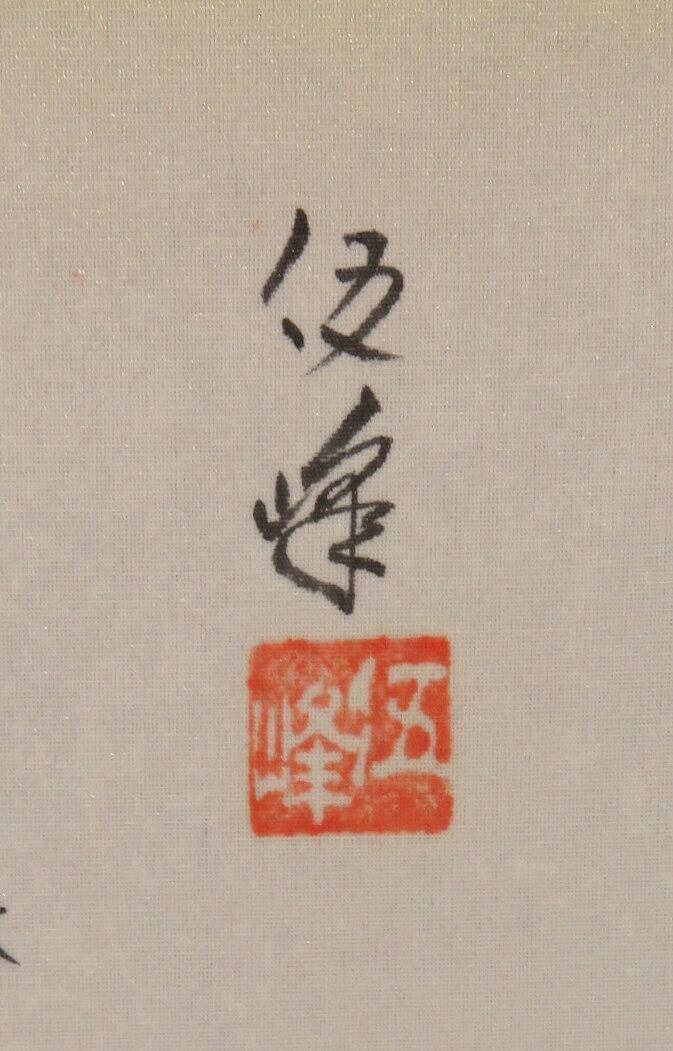 伍峰
伍峰